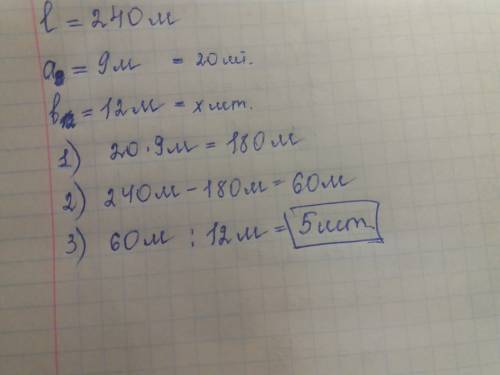 l = 240м
a₉ = 9м = 20шт.
b₁₂ = 12м = x шт.
1) 20 · 9м = 180м
2) 240м - 180м = 60м
3) 60м : 12м = 5шт